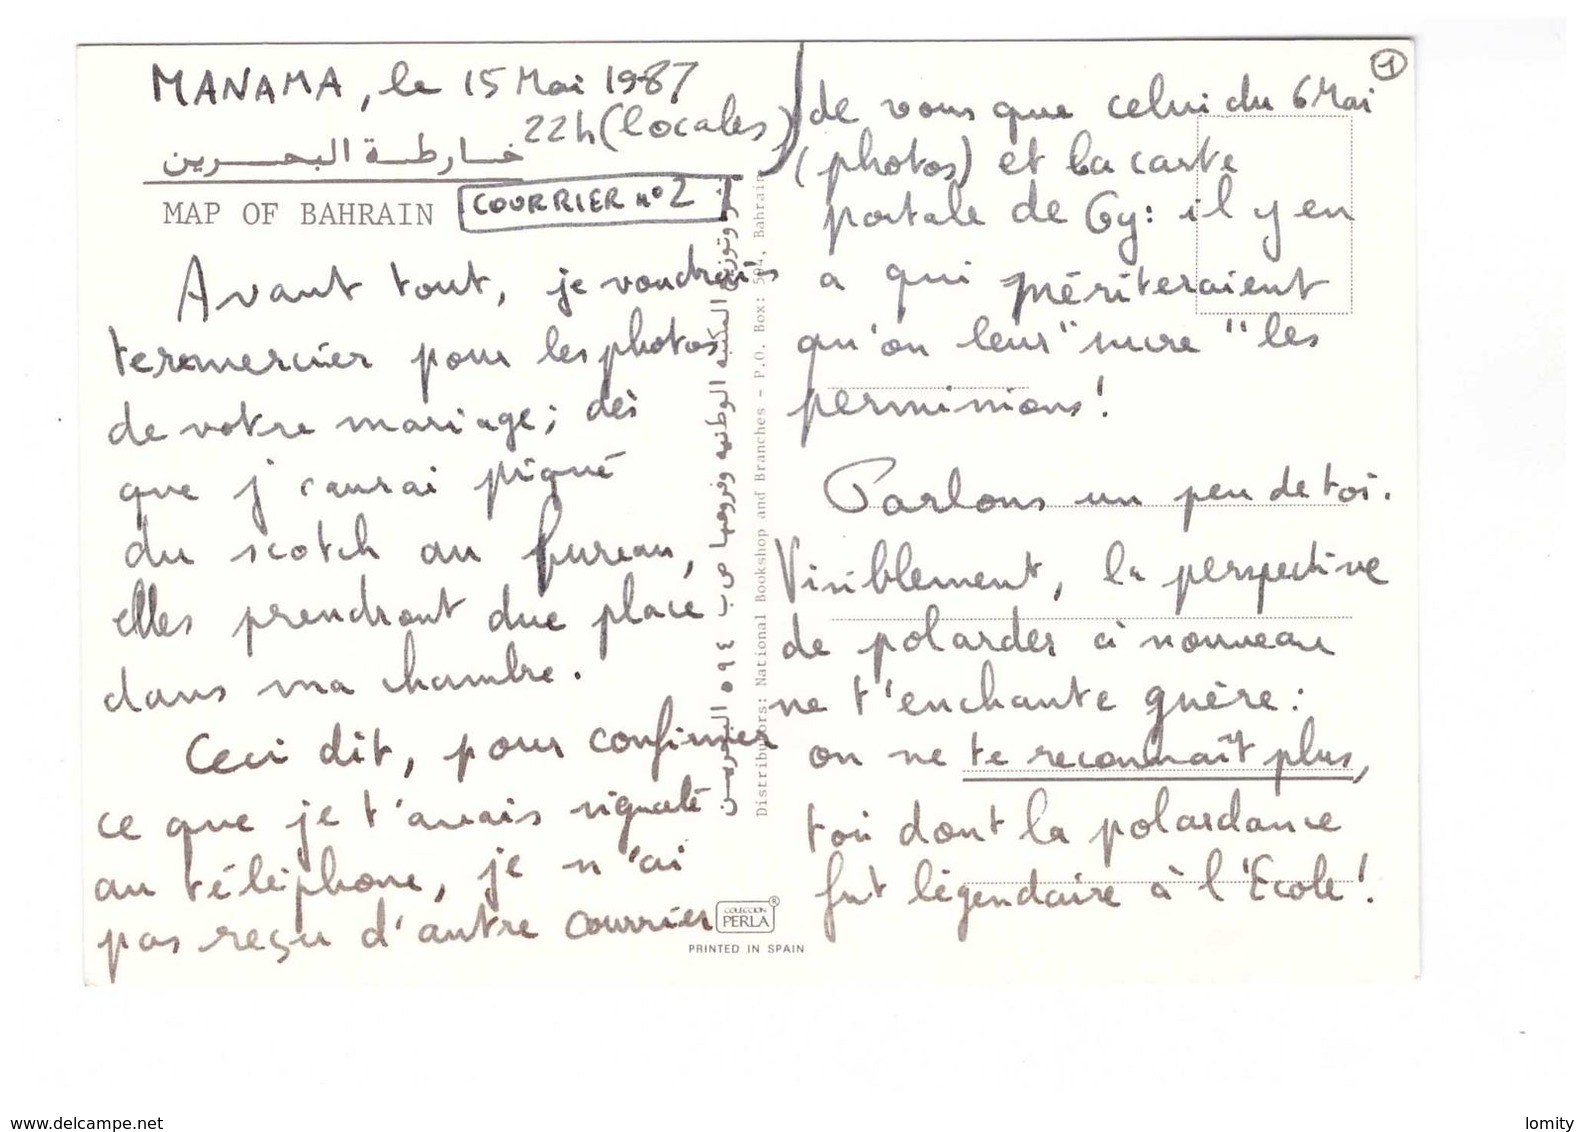 MANAMA, le 15 Mai 1987
22h (locales)
خارطة البحرين
MAP OF BAHRAIN
COURRIER n° 2
Avant tout, je voudrais
te remercier pour les photos
de votre mariage ; dès
que j'aurai piqué
du scotch au bureau,
elles prendront due place
dans ma chambre.
Ceci dit, pour confirmer
ce que je t'avais signalé
au téléphone, je n'ai
pas reçu d'autre courrier
1
de vous que celui du 6 Mai
(photos) et la carte
postale de Gy : il y en
a qui mériteraient
qu'on leur "sucre" les
permissions !
Parlons un peu de toi.
Visiblement, la perspective
de polarder à nouveau
ne t'enchante guère :
on ne te reconnaît plus,
toi dont la polardance
fut légendaire à l'Ecole !
وتوزيع المكتبة الوطنية وفروعها ص ب ٥٩٤ البحرين
Distributors: National Bookshop and Branches - P.O. Box: 594, Bahrain
COLECCION
PERLA®
PRINTED IN SPAIN
www.delcampe.net
lomity